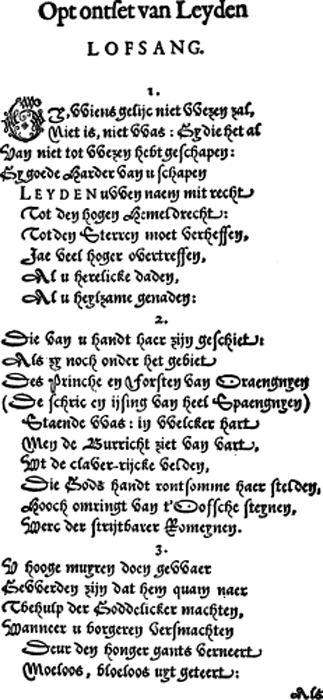 Op t ontset van Leyden
LOFSANG.
1.
Gy, VViens gelijc niet VVezen zal,
Niet is, niet VVas: Gy die het al
Van niet tot VVezen hebt geschapen:
Gy goede Harder van u schapen
LEYDEN uVVen naem mit recht
Tot den hogen Hemeldrecht:
Tot den Sterren moet verheffen,
Jae veel hoger overtreffen,
Al u herelicke daden,
Al u heylzame genaden:
2.
Die van u handt haer zijn geschiet:
Als zy noch onder het gebiet
Des Prinche en Forsten van Oraengnyen
(De schric en ijsing van heel Spaengnyen)
Staende VVas: in VVelcker hart
Men de Burricht ziet van vart,
Wt de claver-rijcke velden,
Die Gods handt rontsomme haer stelden,
Hooch omringt van t'Oossche steynen,
Werc der strijtbarer Romeynen.
3.
V hooge muyren doen geVVaer
GeVVerden zijn dat hem quam naer
Tbehulp der Goddelicker machten,
Wanneer u borgeren versmachten
Deur den honger gants verneert
Moeloos, bloeloos uyt geteert:
Als